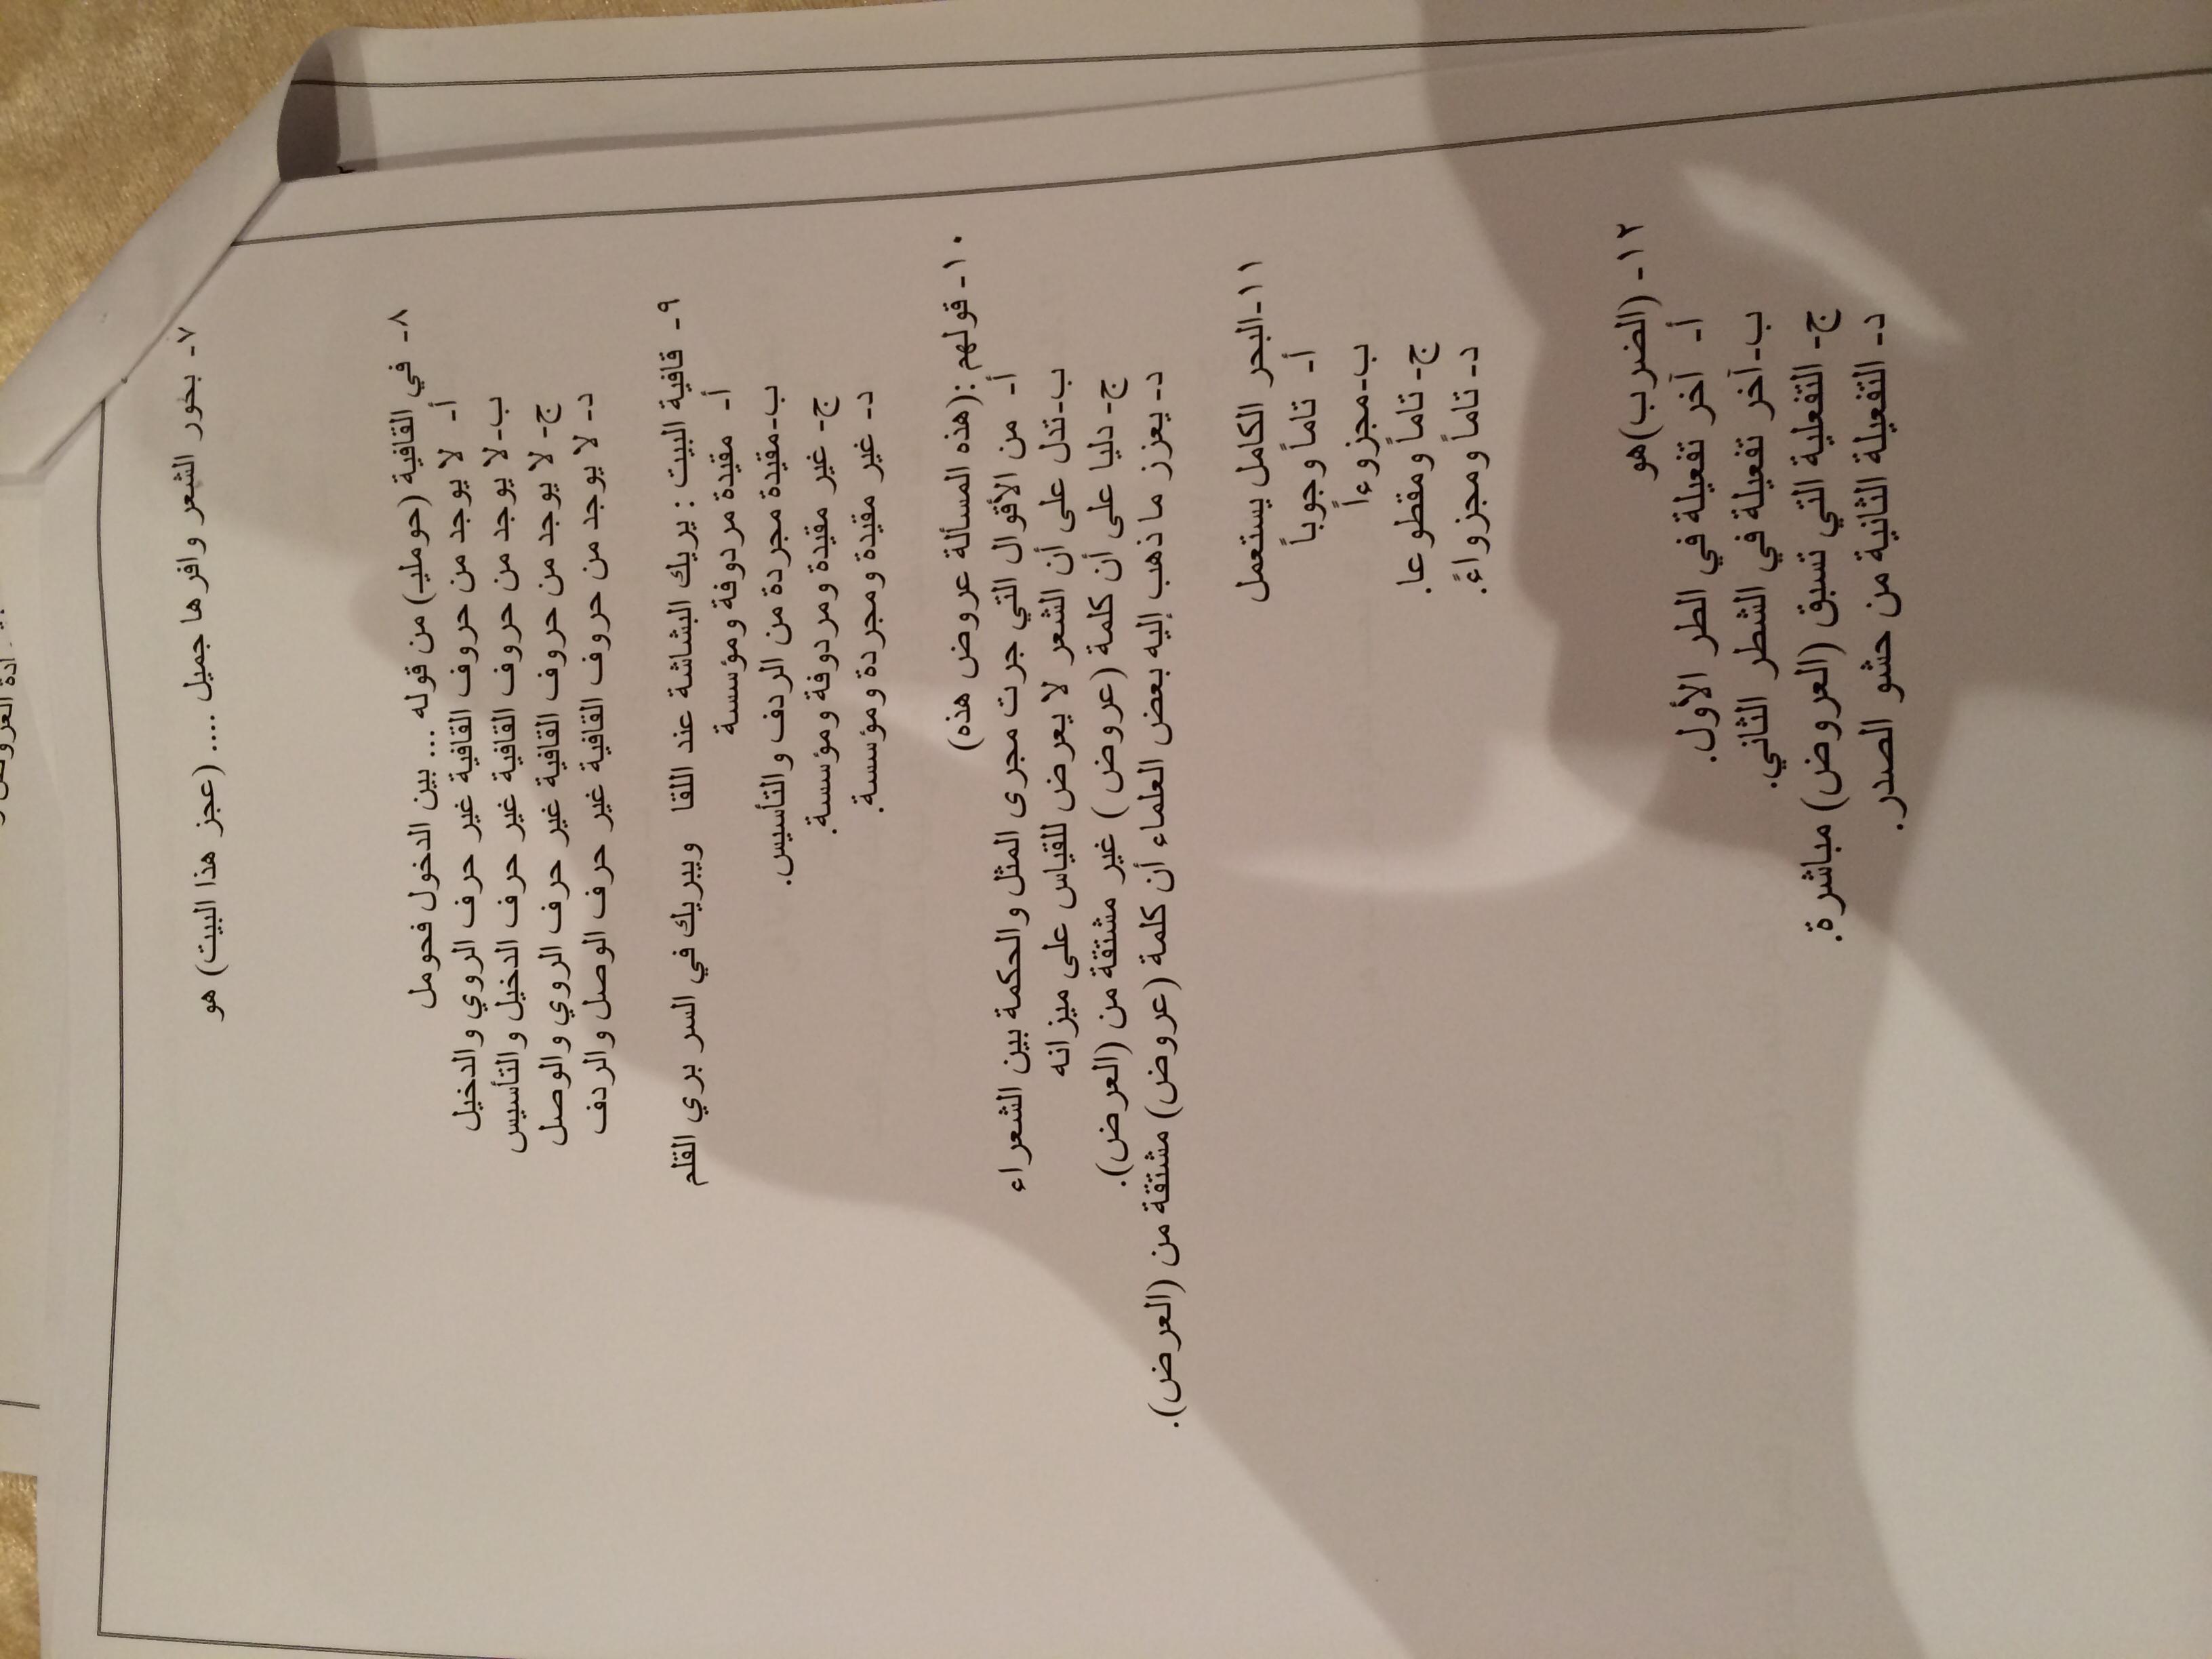 ٧- بحور الشعر وافرها جميل .... (عجز هذا البيت) هو
٨- في القافية (حوملي) من قوله ... بين الدخول فحومل
أ- لا يوجد من حروف القافية غير حرف الروي والدخيل
ب- لا يوجد من حروف القافية غير حرف الدخيل والتأسيس
ج- لا يوجد من حروف القافية غير حرف الروي والوصل
د- لا يوجد من حروف القافية غير حرف الوصل والردف
٩- قافية البيت : يريك البشاشة عند اللقا ويبريك في السر بري القلم
أ- مقيدة مردوفة ومؤسسة
ب-مقيدة مجردة من الردف والتأسيس.
ج- غير مقيدة ومردوفة ومؤسسة.
د- غير مقيدة ومجردة ومؤسسة.
١٠- قولهم :(هذه المسألة عروض هذه)
أ- من الأقوال التي جرت مجرى المثل والحكمة بين الشعراء
ب-تدل على أن الشعر لا يعرض للقياس على ميزانه
ج- دليا على أن كلمة (عروض ) غير مشتقة من (العرض).
د- يعزز ما ذهب إليه بعض العلماء أن كلمة (عروض) مشتقة من (العرض).
١١-البحر الكامل يستعمل
أ- تاماً وجوباً
ب-مجزوءاً
ج- تاماً ومقطوعا.
د- تاماً ومجزواءً.
١٢- (الضرب)هو
أ- آخر تفعيلة في الطر الأول.
ب-آخر تفعيلة في الشطر الثاني.
ج- التفعلية التي تسبق (العروض) مباشرة.
د- التفعيلة الثانية من حشو الصدر.